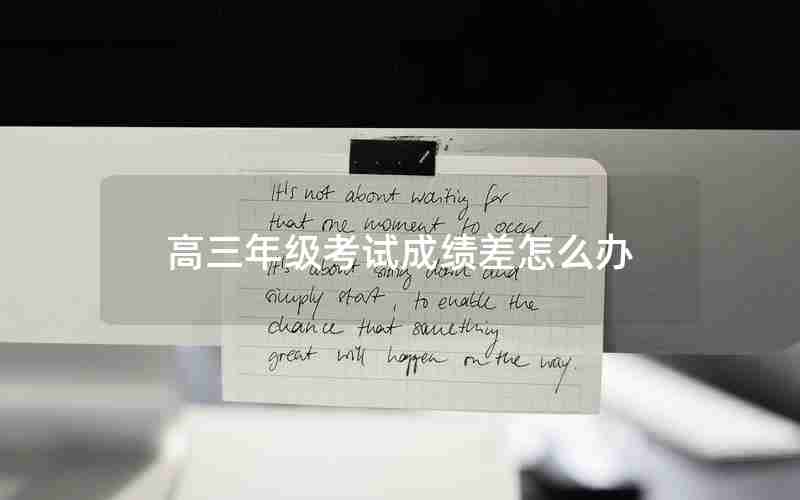 It's not about waiting for
that one moment to occur.
高三年级考试成绩差怎么办
It's about sitting down and
simply start, to enable the
chance that something
great will happen on the way.